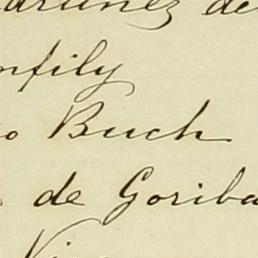 artinez de
nfily
o Buch
de Goriba